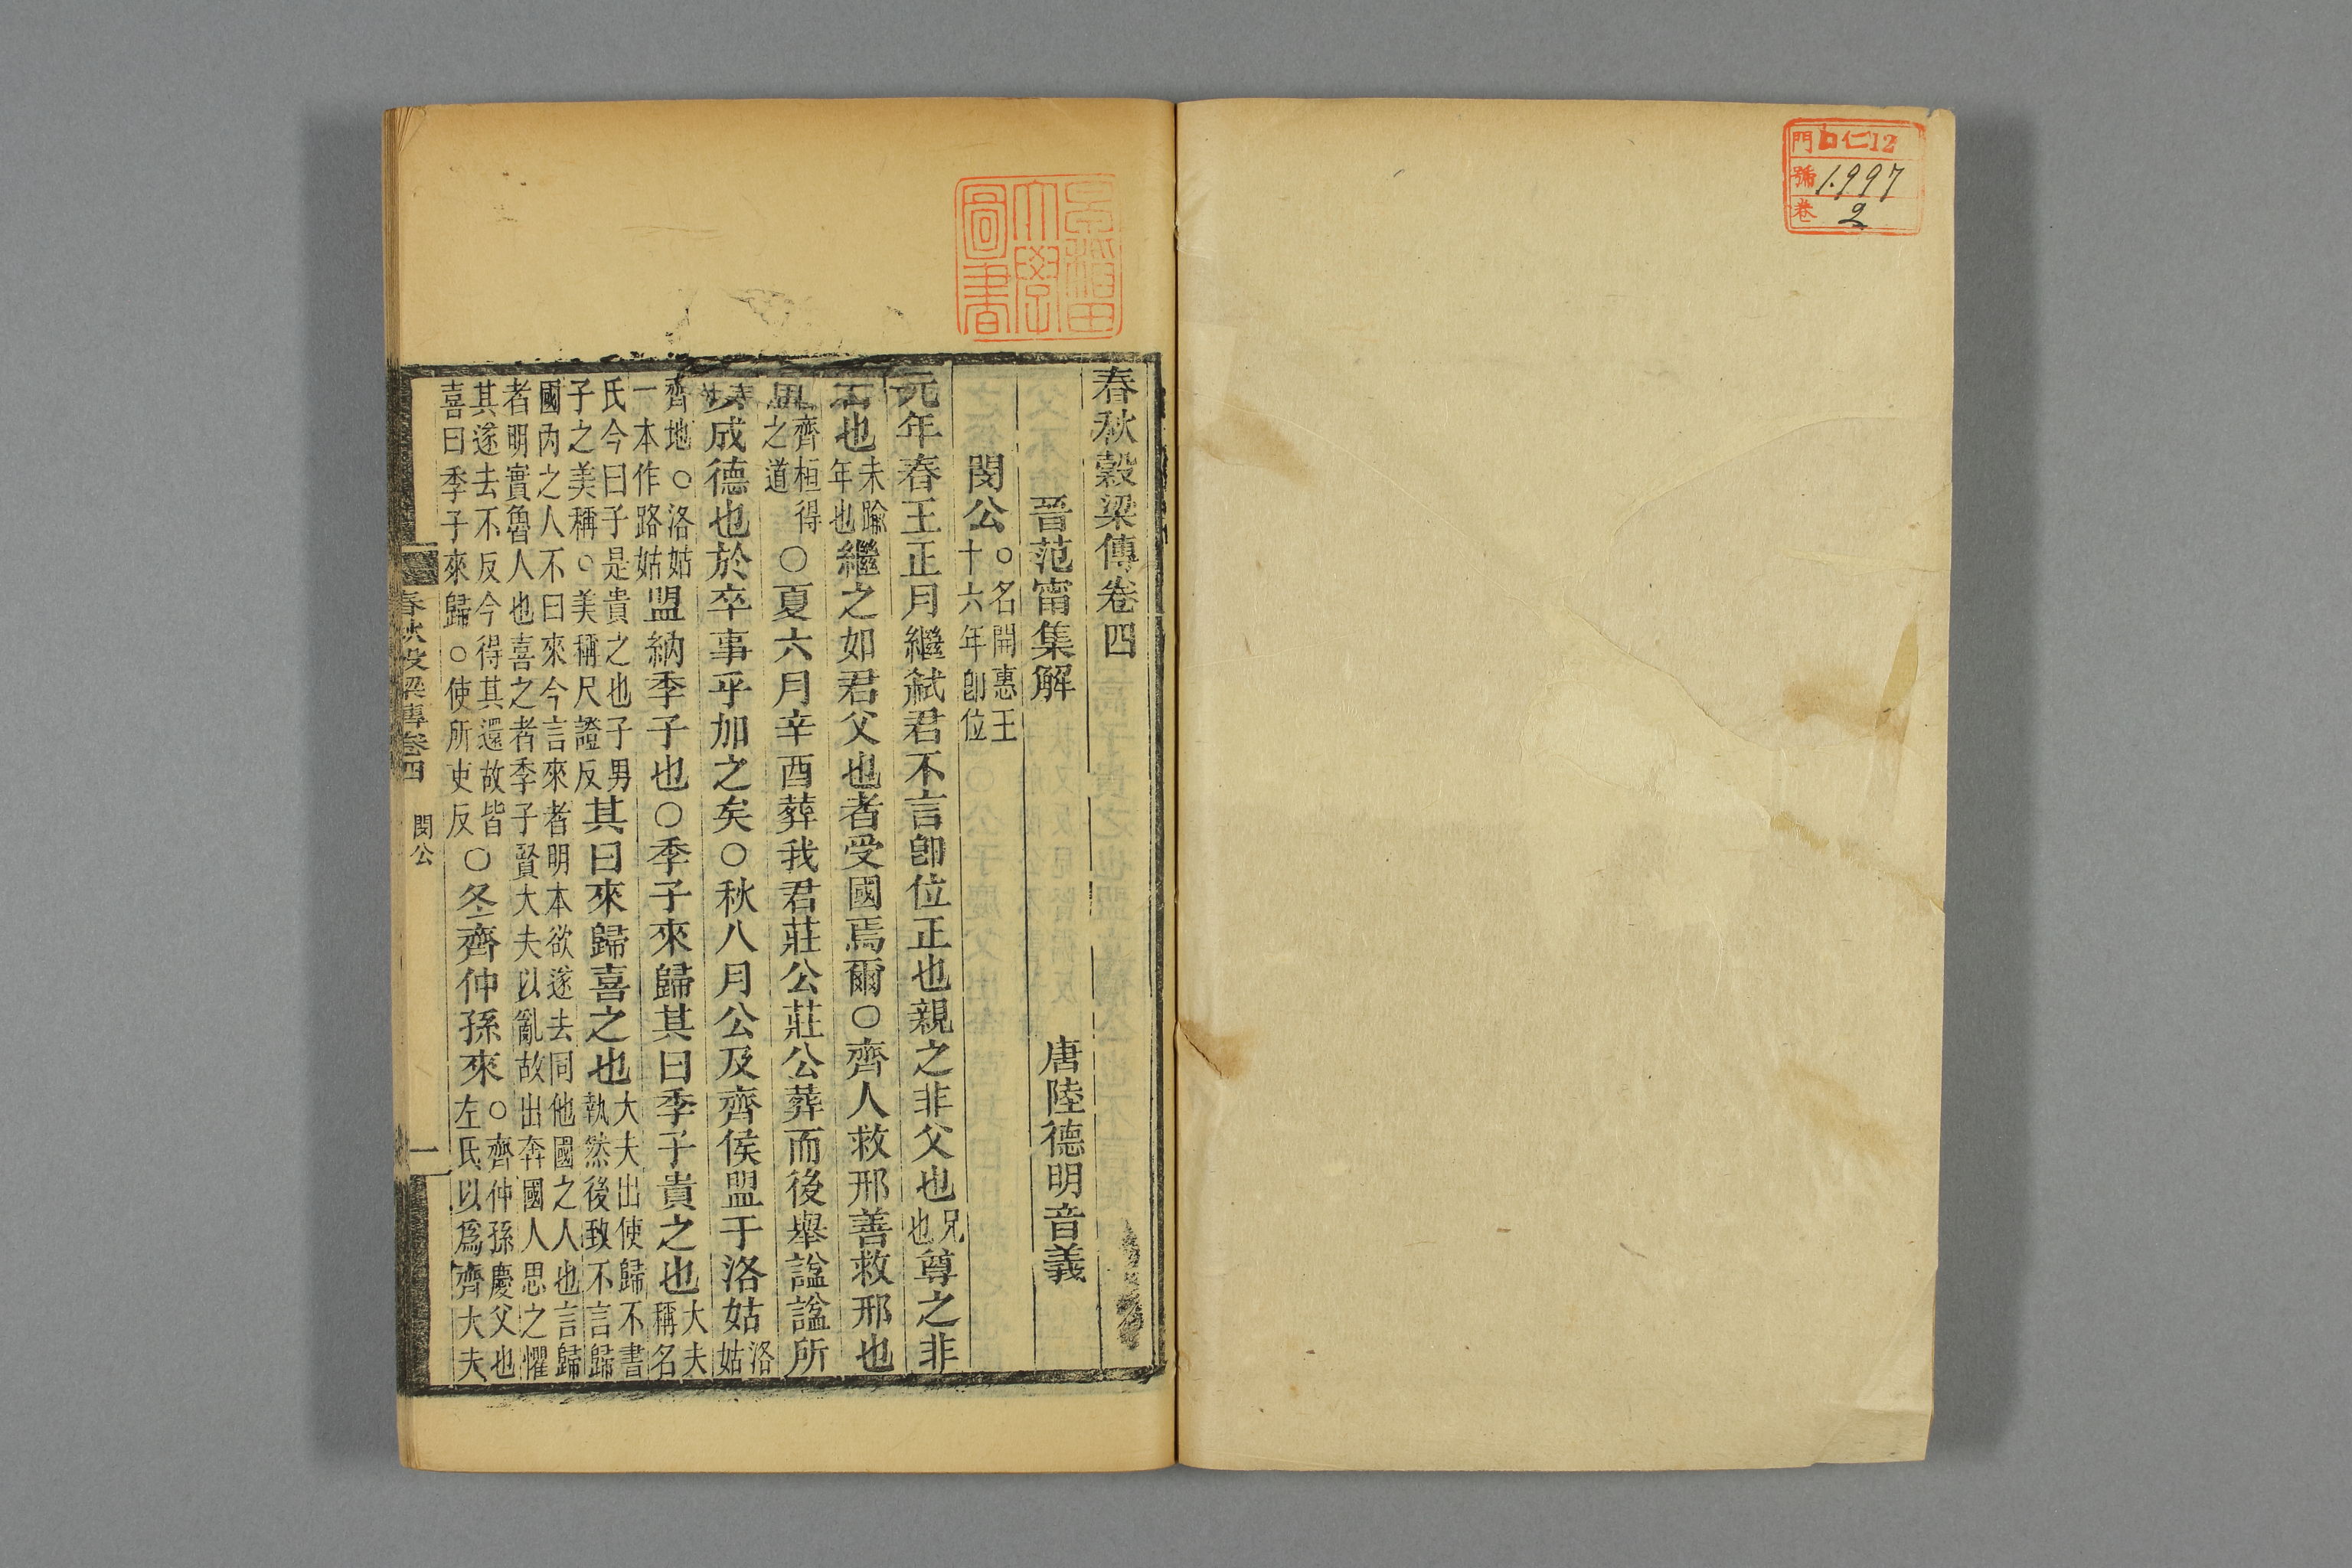 門 ロ仁12
號 1.997
卷 2
早稲田大學圖書
春秋穀梁傳卷四
晉范甯集解 唐陸德明音義
閔公 ○名開惠王十六年卽位
元年春王正月繼弑君不言卽位正也親之非父也 兄也 尊之非
君也 未踰年也 繼之如君父也者受國焉爾○齊人救邢善救邢也
齊桓得之道 ○夏六月辛酉葬我君莊公莊公葬而後舉諡諡所
以成德也於卒事乎加之矣○秋八月公及齊侯盟于洛姑 洛姑
齊地○洛姑一本作路姑 盟納季子也○季子來歸其曰季子貴之也 大夫稱名
氏今曰子是貴之也子男子之美稱○美稱尺證反 其曰來歸喜之也 大夫出使歸不書執然後致不言歸
國內之人不曰來今言來者明本欲遂去同他國之人也言歸者明實魯人也喜之者季子賢大夫以亂故出奔國人思之懼
其遂去不反今得其還故皆喜曰季子來歸○使所吏反 ○冬齊仲孫來 ○齊仲孫慶父也左氏以爲齊大夫
春秋穀梁傳卷四 閔公 一